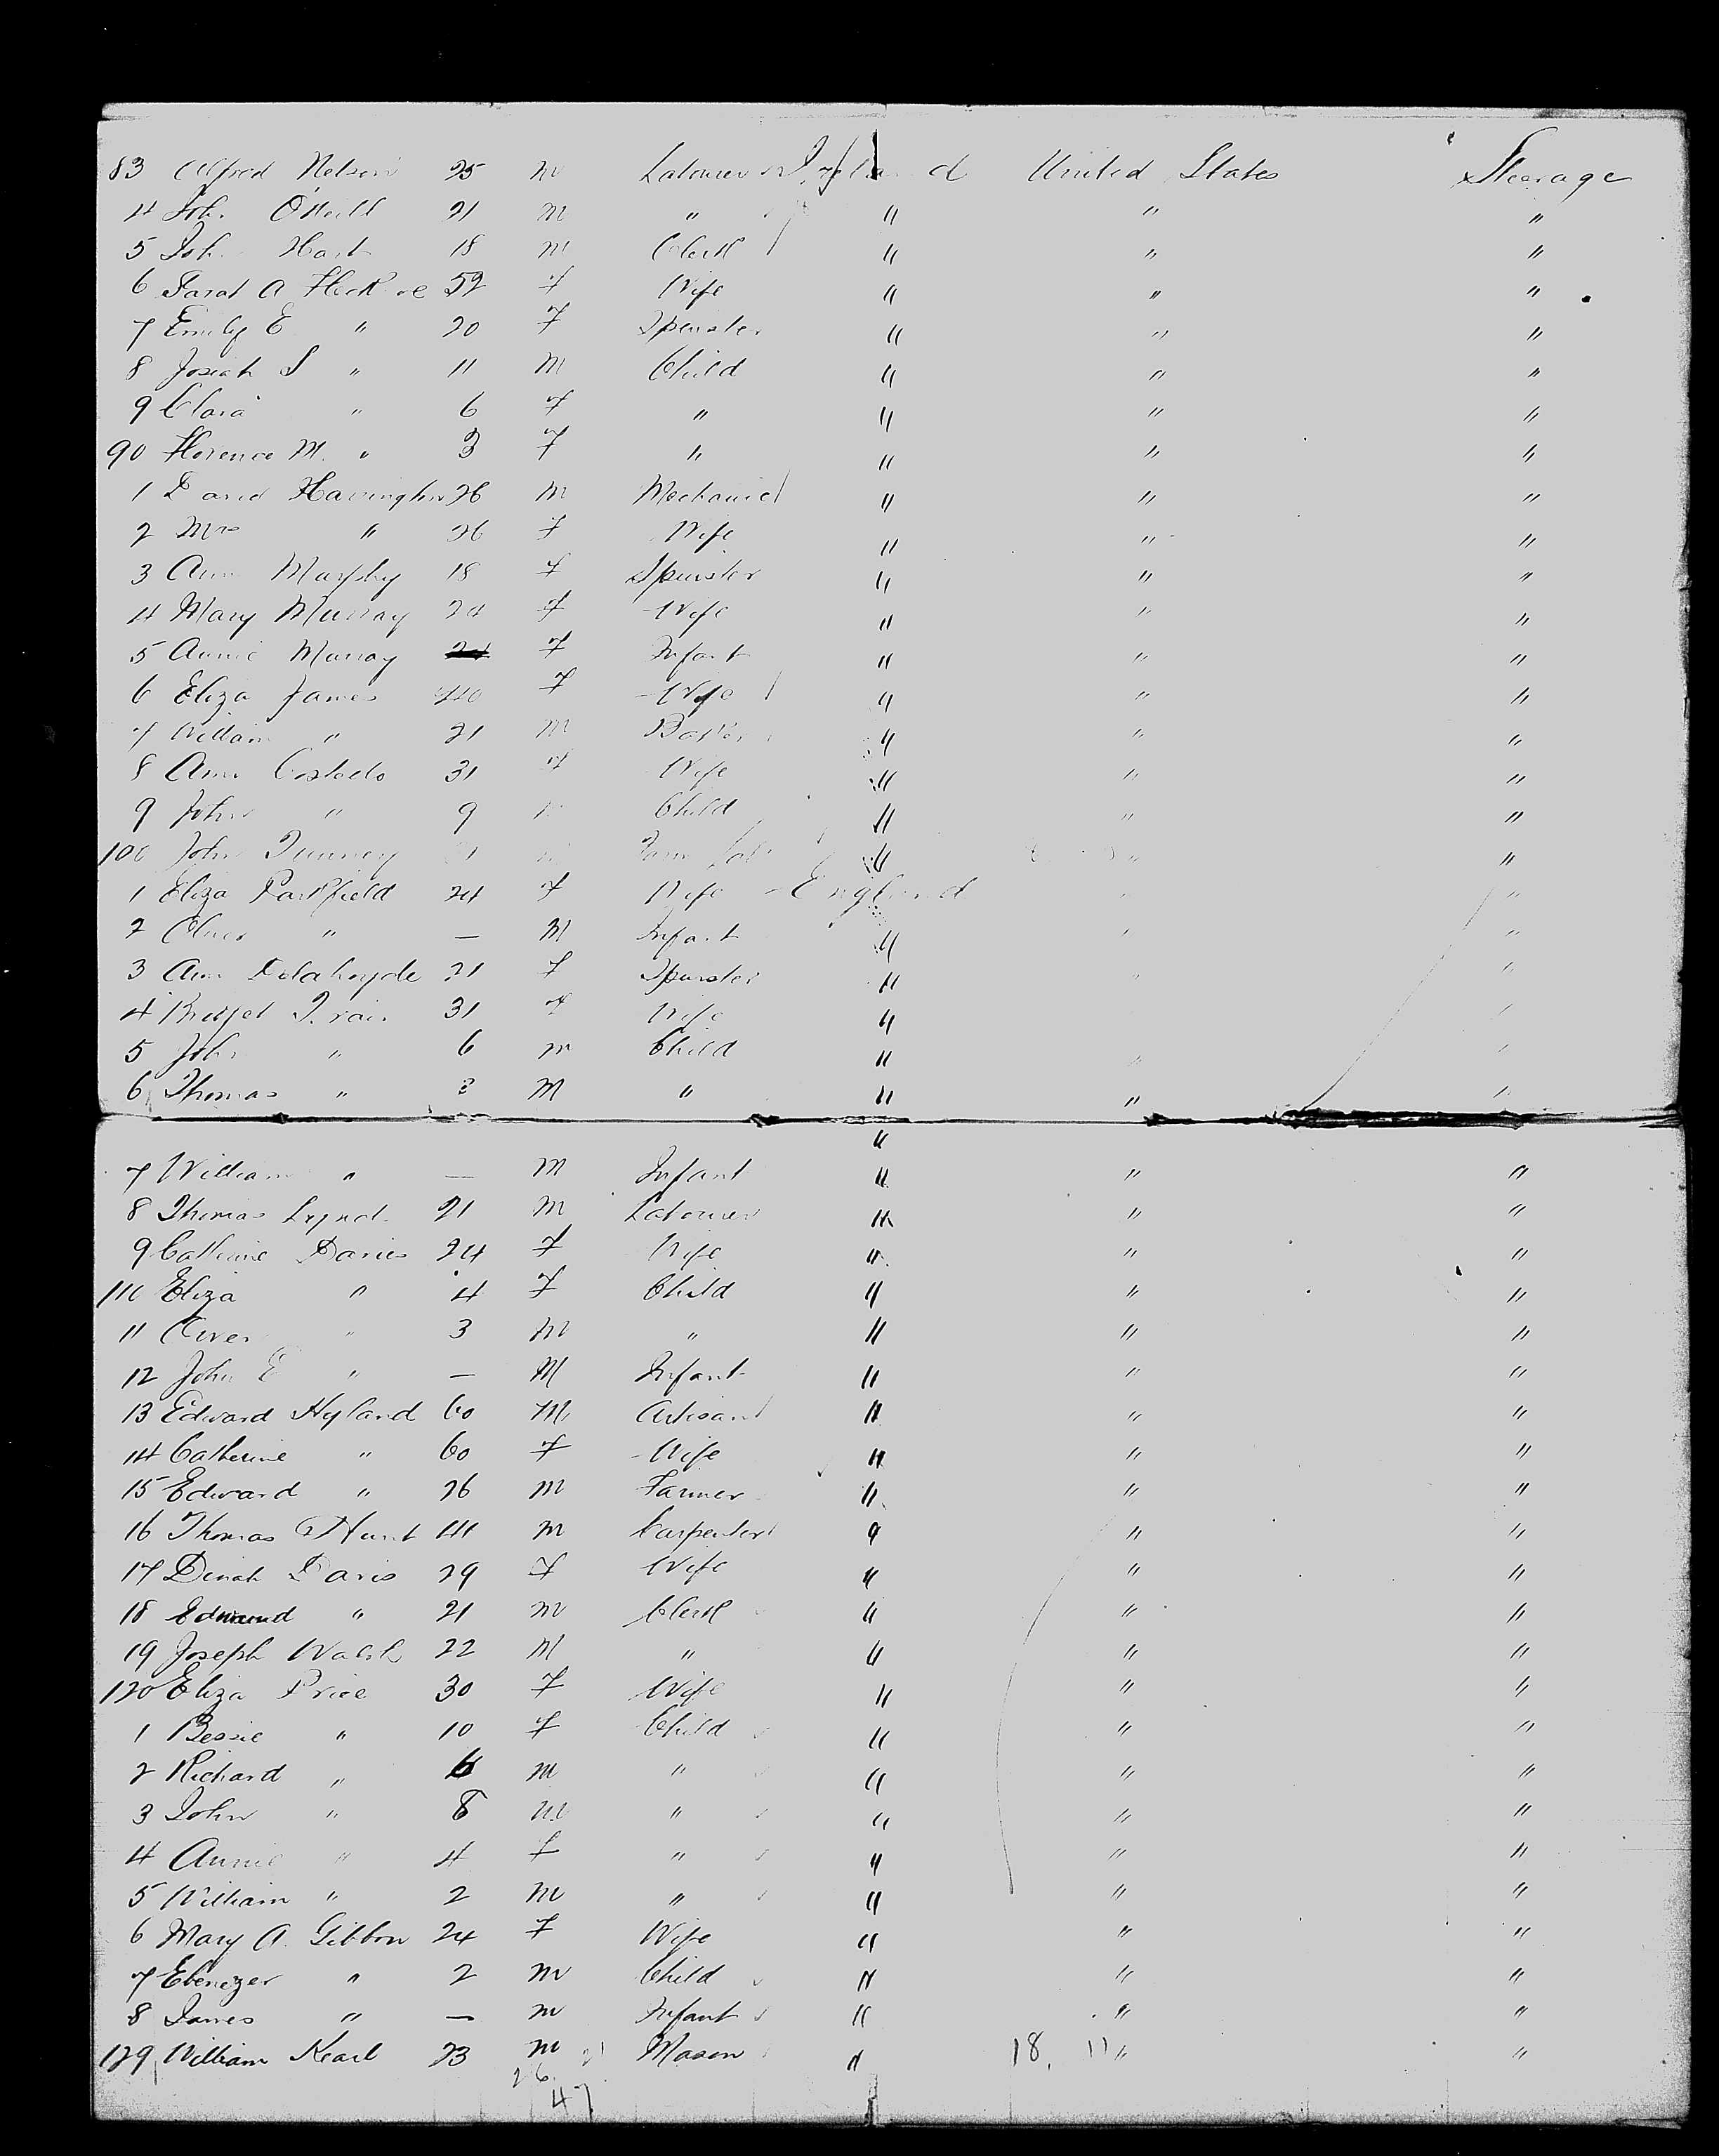 83 Alfred Nelson 25 m Labourer Ireland United States Steerage
4 Joh. O'Neill 21 m " " " "
5 Joh. Hart 18 m Clerk " " "
6 Sarah A 52 f Wife " " "
7 Emily E " 20 f Spinster " " "
8 Josiah S " 11 m Child " " "
9 Clara " 6 f " " " "
90 Florence M. " 3 f " " " "
1 David Harrington 26 m Mechanic " " "
2 Mrs " 26 f Wife " " "
3 Ann Murphy 18 f Spinster " " "
4 Mary Murray 24 f Wife " " "
5 Annie Murray f Infant " " "
6 Eliza James 40 f Wife " " "
7 William " 21 m Baker " " "
8 Ann Costello 31 f Wife " " "
9 John " 9 m Child " " "
100 John Tunney Farm Lab " " "
1 Eliza Parkfield 24 f Wife England " "
2 Oliver " — m Infant " " "
3 Ann Delahoyde 21 f Spinster " " "
4 Bridget 31 f Wife " "
5 John " 6 m Child " " "
6 Thomas " 3 m " " " "
"
7 William " — m Infant " " "
8 Thomas Lynch 21 m Labourer " " "
9 Catherine Davies 24 f Wife " " "
110 Eliza " 4 f Child " " "
11 Oliver " 3 m " " " "
12 John E " — m Infant " " "
13 Edward Hyland 60 m Artisan " " "
14 Catherine " 60 f Wife " " "
15 Edward " 26 m Farmer " " "
16 Thomas Hunt 41 m Carpenter " " "
17 Dinah Davis 29 f Wife " " "
18 Edmund " 21 m Clerk " " "
19 Joseph Walsh 22 m " " " "
120 Eliza Price 30 f Wife " " "
1 Bessie " 10 f Child " " "
2 Richard " 6 m " " " "
3 John " 8 m " " " "
4 Annie " 4 f " " " "
5 William " 2 m " " " "
6 Mary A. Gibbon 24 f Wife " " "
7 Ebenezer " 2 m Child " " "
8 James " — m Infant " " "
129 William Kearl 23 m Mason " 18, 11 " "
26
47